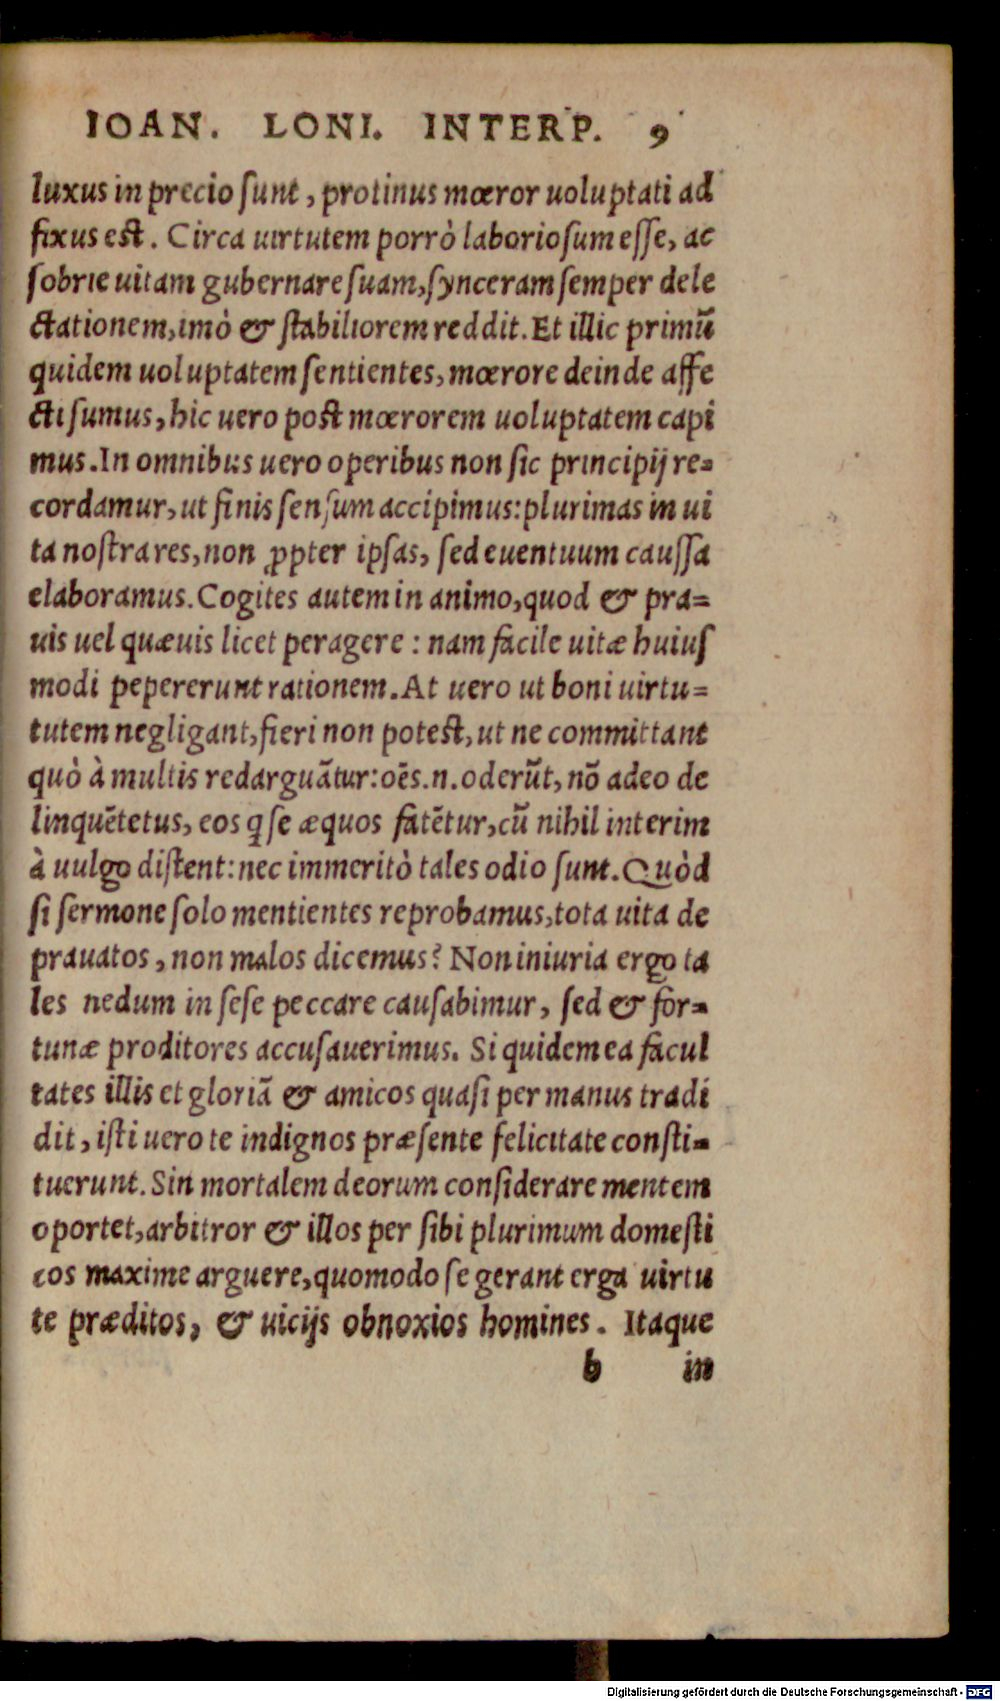 IOAN. LONI. INTERP. 9
luxus in precio ſunt, protinus mœror uoluptati ad
fixus est. Circa uirtutem porrò laborioſum eſſe, ac
ſobrie uitam gubernare ſuam, ſynceram ſemper dele
ctationem, imò & ſtabiliorem reddit. Et illic primũ
quidem uoluptatem ſentientes, mœrore deinde affe
cti ſumus, hic uero post mœrorem uoluptatem capi
mus. In omnibus uero operibus non ſic principij re=
cordamur, ut finis ſenſum accipimus: plurimas in ui
ta noſtra res, non ꝓpter ipſas, ſed euentuum cauſſa
elaboramus. Cogites autem in animo, quod & pra=
uis uel quæuis licet peragere : nam facile uitæ huiuſ
modi pepererunt rationem. At uero ut boni uirtu=
tutem negligant, fieri non potest, ut ne committant
quò à multis redarguãtur: oẽs. n. oderũt, nõ adeo de
linquẽtetus, eos ꝗ ſe æquos fatẽtur, cũ nihil interim
à uulgo diſtent: nec immeritò tales odio ſunt. Quòd
ſi ſermone ſolo mentientes reprobamus, tota uita de
prauatos, non malos dicemus? Non iniuria ergo ta
les nedum in ſeſe peccare cauſabimur, ſed & for=
tunæ proditores accuſauerimus. Si quidem ea facul
tates illis et gloriã & amicos quaſi per manus tradi
dit, iſti uero te indignos præſente felicitate conſti=
tuerunt. Sin mortalem deorum conſiderare mentem
oportet, arbitror & illos per ſibi plurimum domeſti
cos maxime arguere, quomodo ſe gerant erga uirtu
te præditos, & uicijs obnoxios homines. Itaque
b in
Digitalisierung gefördert durch die Deutsche Forschungsgemeinschaft - DFG